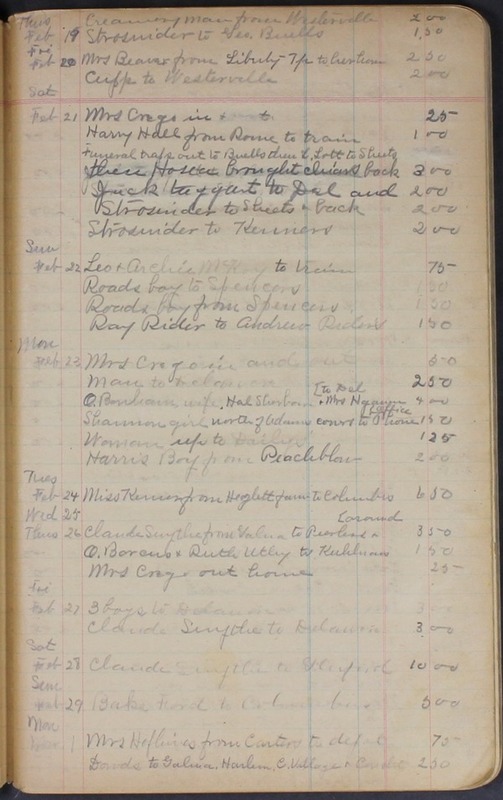 Thus Creamery man from Westerville 2 00
Feb 19 Strosnider to Geo. Buells 1,50
Fri
Feb 20 Mrs Beaver from Liberty Tp to her home 2 50
Cupp to Westerville 2 00
Sat
Feb 21 Mrs Crego in + 25
Harry Hall from Rome to train 1 00
Funeral traps out to Buells then L. Lott to Sheets
then Hosea brought chairs back 3 00
Jack Taggart to Del and 2 00
Strosnider to Sheets + back 2 00
Strosnider to Kenners 2 00
Sun
Feb 22 Leo + Archie to train 75
Roads boy to Spencers 1 50
Roads boy from Spencers 1 50
Ray Rider to Andrew Riders 1 50
Mon
Feb 23 Mrs Crego in and out 50
Man to Delaware 2 50
O. Bonham, wife, Hal Sherbon + Mrs [to Del 4 00
Shannon girl north of Adams cours to Phone [Office 1 50
Woman up to 1 25
Harris Boy from Peachblow 2 00
Tues
Feb 24 Miss from farm to Columbus 6 50
Wed 25 [around
Thurs 26 Claude Smythe from Galena to 3 50
O. Borcus + Ruth Utley to 1 50
Mrs Crego out home 25
Fri
Feb 27 3 boys to Delaware 3 00
Claude Smythe to Delaware 3 00
Sat
Feb 28 Claude Smythe to 10 00
Sun
Feb 29 Bake Ford to Columbus 5 00
Mon
Mar 1 Mrs from Carters to 75
Dowds to Galena, Harlem, C. Village + 2 50